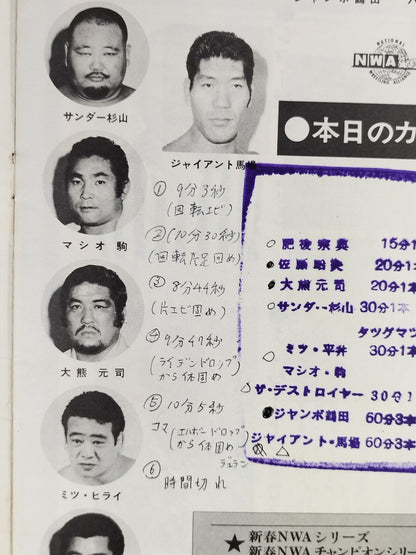 NATIONAL
NWA
WRESTLING ALLIANCE
サンダー杉山
ジャイアント馬場
●本日のカ
マシオ 駒
大熊 元司
ミツ・ヒライ
① 9分3秒
(回転エビ)
② (10分30秒)
(回転片足固め)
③ 8分44秒
(片エビ固め)
④ 9分47秒
(ライデンドロップ)
から体固め
⑤ 10分5秒
コマ (エルボードロップ
から体固め
⑥
時間切れ
○肥後宗典 15分1
●佐藤昭英 20分1本
●大熊元司 20分1本
○サンダー杉山 30分1本
タツグマツ
○ミツ・平井 30分1本
マシオ・駒
△ザ・デストロイヤー 30分1
●ジャンボ鶴田 60分3本
ジャイアント・馬場 60分3本
★新春NWAシリーズ
新春NWAチャンピオンシリー